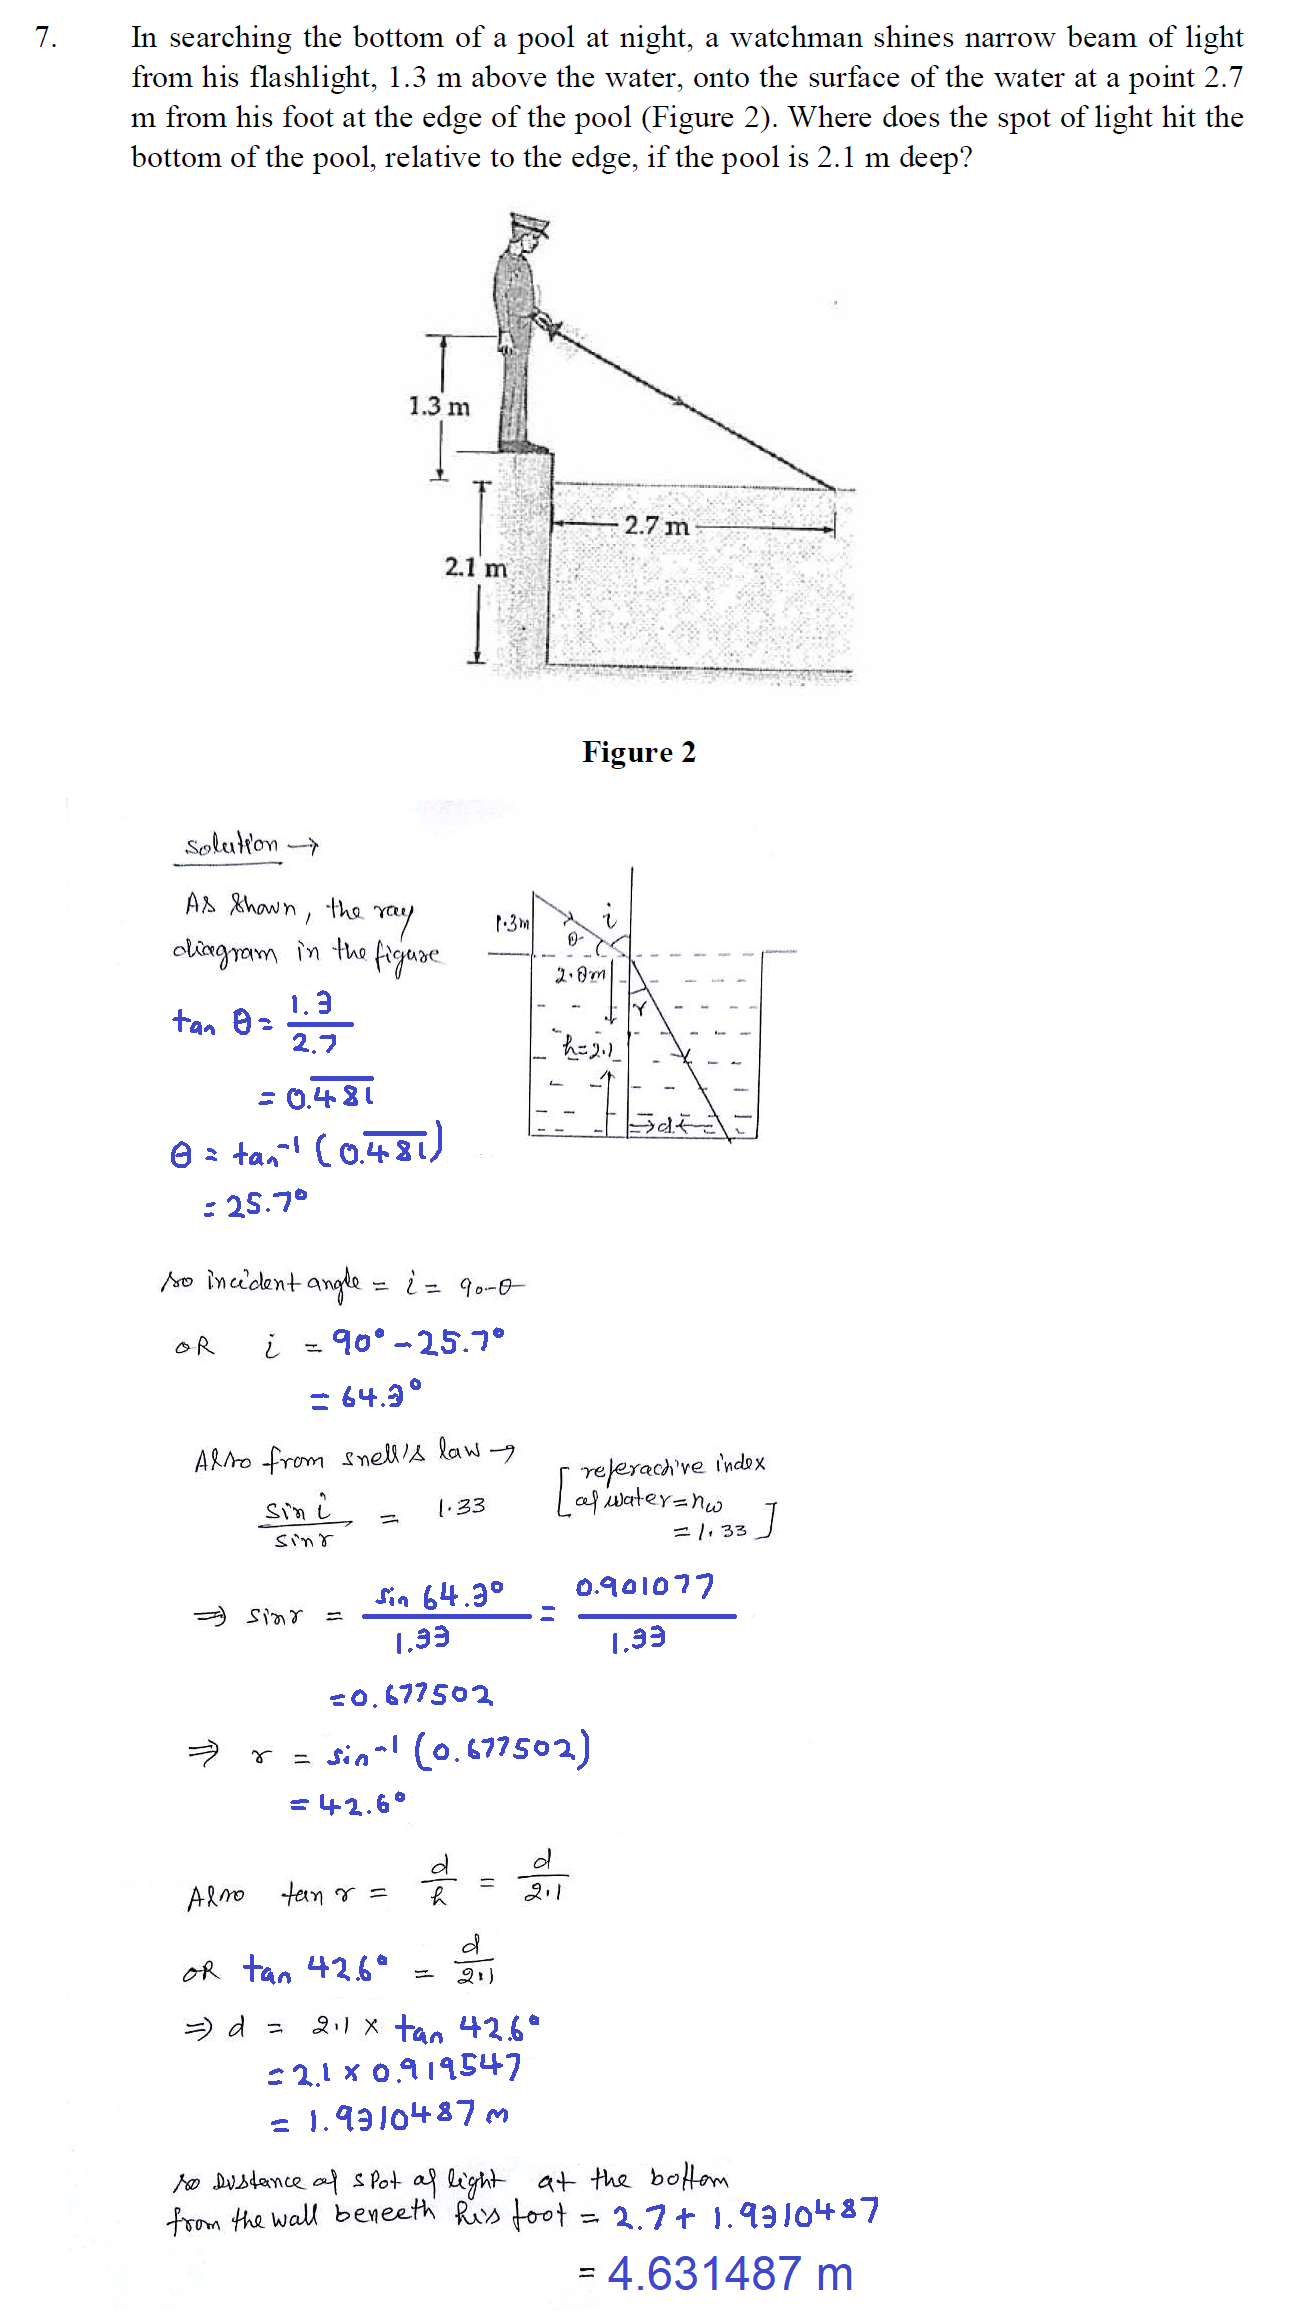 7. In searching the bottom of a pool at night, a watchman shines narrow beam of light
from his flashlight, 1.3 m above the water, onto the surface of the water at a point 2.7
m from his foot at the edge of the pool (Figure 2). Where does the spot of light hit the
bottom of the pool, relative to the edge, if the pool is 2.1 m deep?
1.3 m
2.7 m
2.1 m
Figure 2
Solution →
As shown, the ray
diagram in the figure
1.3m
i
θ
2.0m
r
h=2.1
→d←
tan θ = 1.3 / 2.7
= 0.4̅8̅1̅
θ = tan⁻¹ (0.4̅8̅1̅)
= 25.7°
so incident angle = i = 90-θ
OR i = 90° - 25.7°
= 64.3°
Also from snell's law →
sin i / sin r = 1.33
[referactive index
of water = nw
= 1.33]
⇒ sin r = sin 64.3° / 1.33 = 0.901077 / 1.33
= 0.677502
⇒ r = sin⁻¹ (0.677502)
= 42.6°
Also tan r = d / h = d / 2.1
OR tan 42.6° = d / 2.1
⇒ d = 2.1 × tan 42.6°
= 2.1 × 0.919547
= 1.9310487 m
so Distance of spot of light at the bottom
from the wall beneeth his foot = 2.7 + 1.9310487
= 4.631487 m